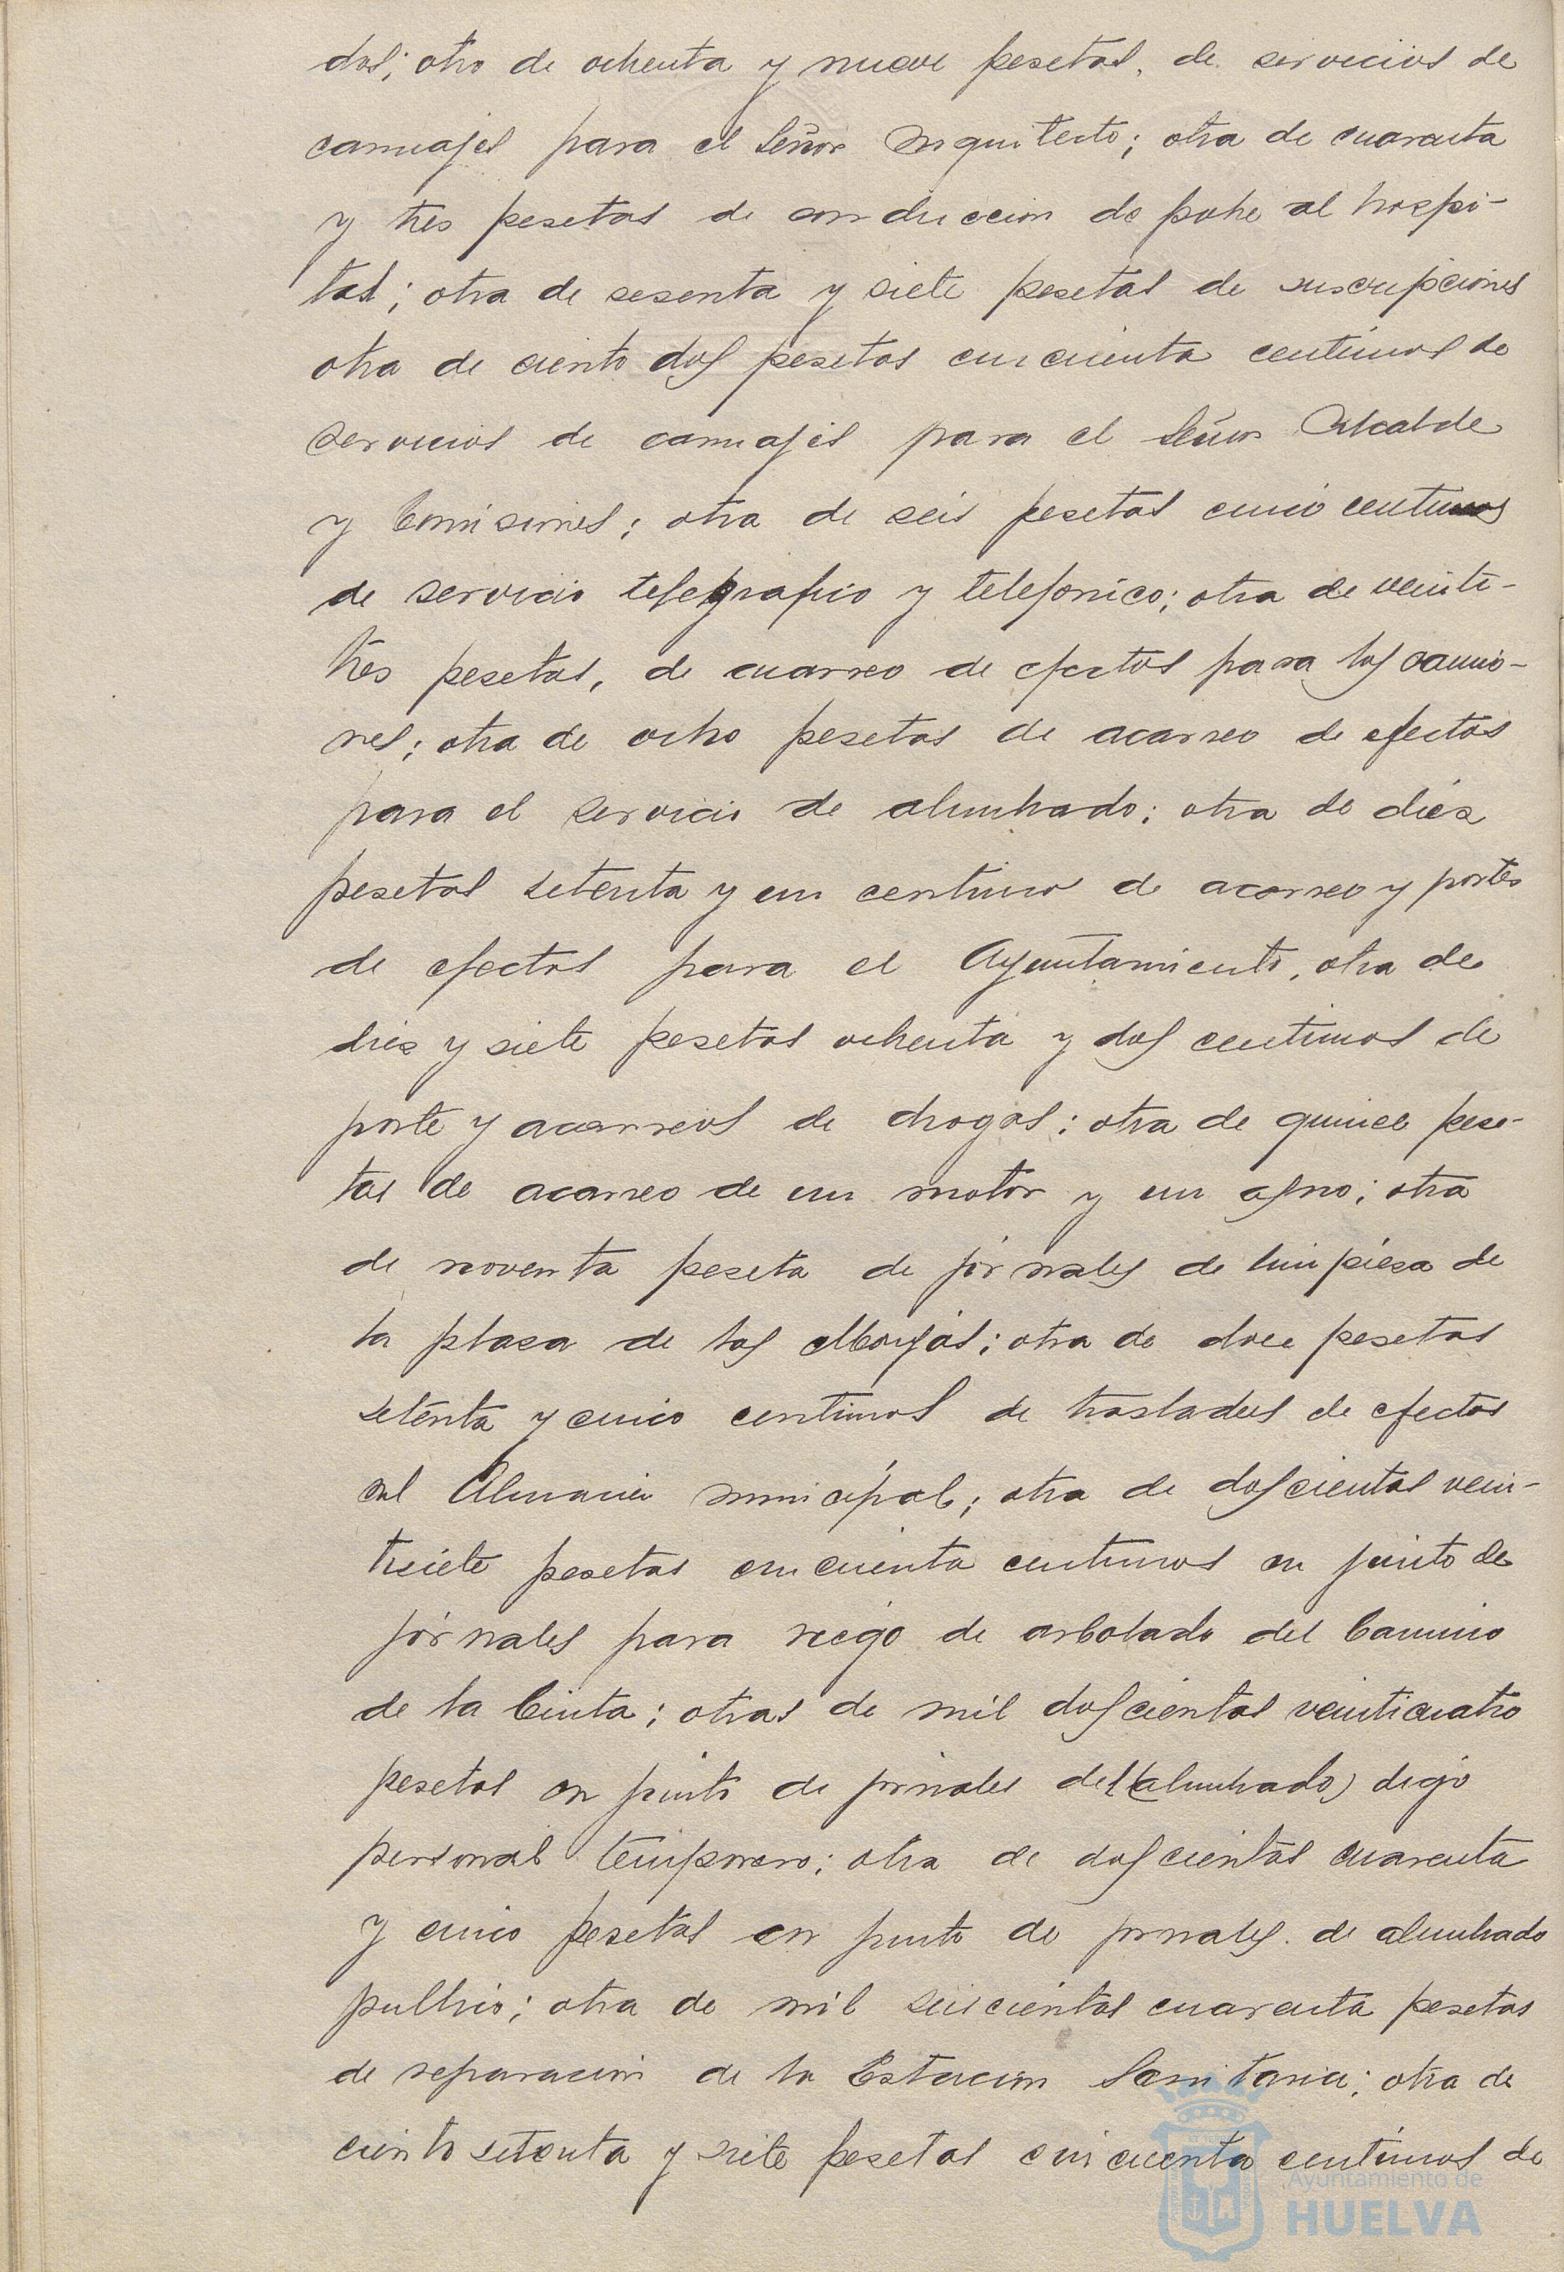 dos; otro de ochenta y nueve pesetas, de servicios de
carruajes para el Señor Arquitecto; otra de cuarenta
y tres pesetas de conduccion de pobre al hospi-
tal; otra de sesenta y siete pesetas de suscripciones
otra de ciento dos pesetas cincuenta centimos de
servicios de carruajes para el Señor Alcalde
y Comisiones; otra de seis pesetas cinco centimos
de servicio telegrafico y telefonico; otra de veinti-
tres pesetas, de acarreo de efectos para los camio-
nes; otra de ocho pesetas de acarreo de efectos
para el servicio de alumbrado; otra de diez
pesetas setenta y un centimos de acarreo y portes
de efectos para el Ayuntamiento, otra de
diez y siete pesetas ochenta y dos centimos de
porte y acarreos de drogas; otra de quince pese-
tas de acarreo de un motor y un asno; otra
de noventa peseta de jornales de limpieza de
la plaza de las Monjas; otra de doce pesetas
setenta y cinco centimos de traslados de efectos
al Almacen municipal; otra de doscientas vein-
tisiete pesetas cincuenta centimos en junto de
jornales para riego de arbolado del Camino
de la Cinta; otras de mil doscientas veinticuatro
pesetas en junto de jornales del (alumbrado) digo
personal temporero; otra de doscientas cuarenta
y cinco pesetas en junto de jornales de alumbrado
publico; otra de mil seiscientas cuarenta pesetas
de reparacion de la Estacion Sanitaria; otra de
ciento setenta y siete pesetas cincuenta centimos de
Ayuntamiento de
HUELVA